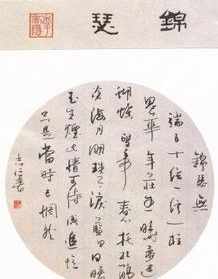 錦瑟
錦瑟無
端五十弦一弦一柱
思華年莊生曉夢迷
蝴蝶望帝春心托杜鵑
滄海月明珠有淚藍田日暖
玉生煙此情可待成追憶
只是當時已惘然
書